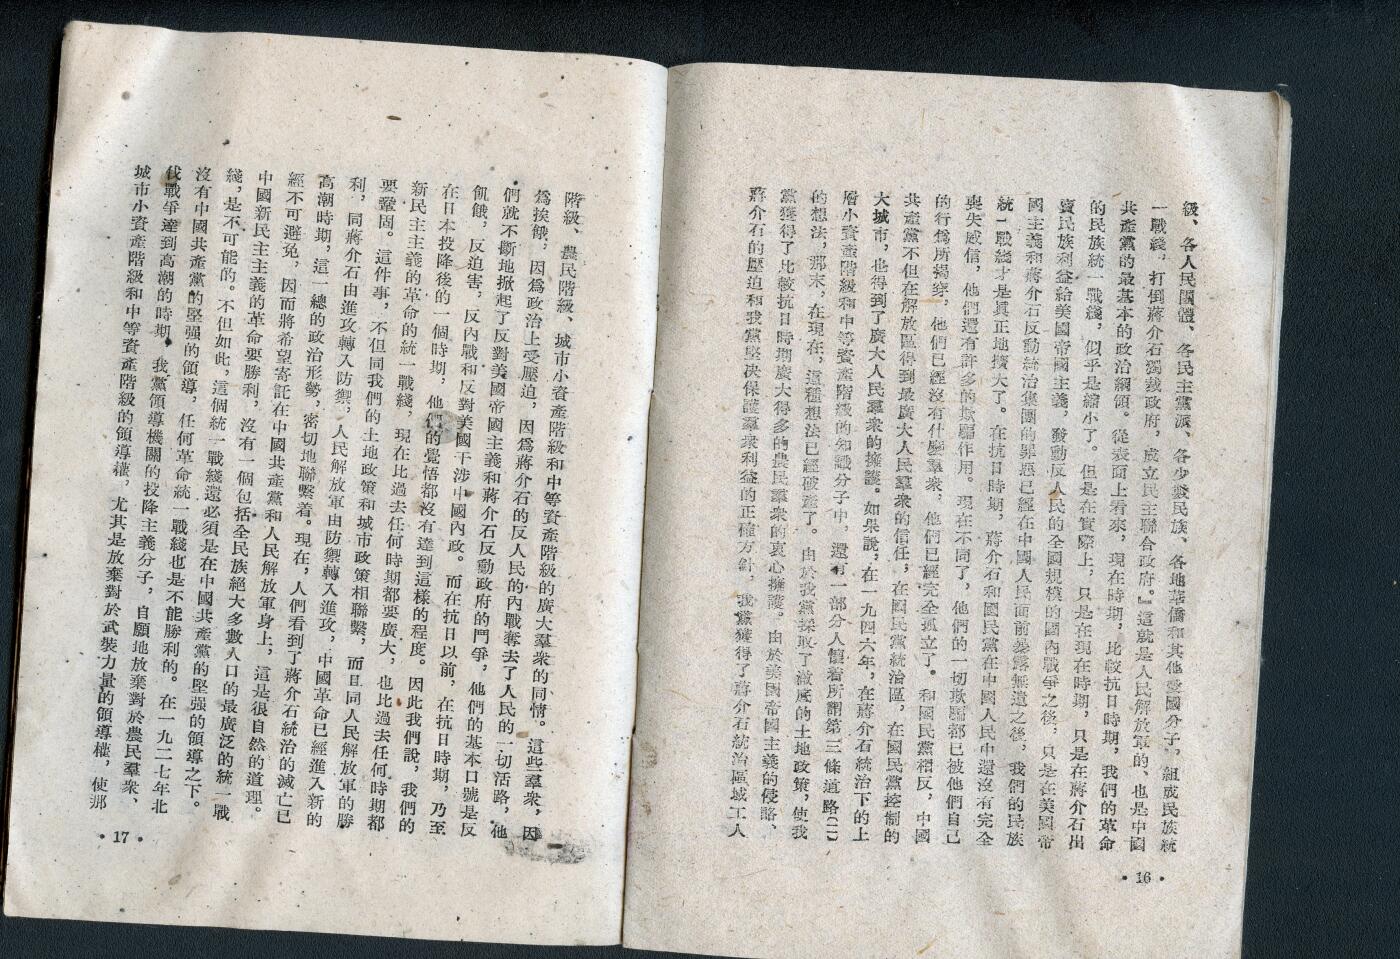 級、各人民團體、各民主黨派、各少數民族、各地華僑和其他愛國分子，組成民族統
一戰綫，打倒蔣介石獨裁政府，成立民主聯合政府。』這就是人民解放軍的、也是中國
共產黨的最基本的政治綱領。從表面上看來，現在時期，比較抗日時期，我們的革命
的民族統一戰綫，似乎是縮小了。但是在實際上，只是在現在時期，只是在蔣介石出
賣民族利益給美國帝國主義，發動反人民的全國規模的國內戰爭之後，只是在美國帝
國主義和蔣介石反動統治集團的罪惡已經在中國人民面前暴露無遺之後，我們的民族
統一戰綫才是眞正地擴大了。在抗日時期，蔣介石和國民黨在中國人民中還沒有完全
喪失威信，他們還有許多的欺騙作用。現在不同了，他們的一切欺騙都已被他們自己
的行爲所揭穿，他們已經沒有什麼羣衆，他們已經完全孤立了。和國民黨相反，中國
共產黨不但在解放區得到最廣大人民羣衆的信任，在國民黨統治區，在國民黨控制的
大城市，也得到了廣大人民羣衆的擁護。如果說，在一九四六年，在蔣介石統治下的上
層小資產階級和中等資產階級的知識分子中，還有一部分人懷着所謂第三條道路(二)
的想法，那末，在現在，這種想法已經破產了。由於我黨採取了澈底的土地政策，使我
黨獲得了比較抗日時期廣大得多的農民羣衆的衷心擁護。由於美國帝國主義的侵略、
蔣介石的壓迫和我黨堅決保護羣衆利益的正確方針，我黨獲得了蔣介石統治區域工人
• 16 •
階級、農民階級、城市小資產階級和中等資產階級的廣大羣衆的同情。這些羣衆，因
爲挨餓，因爲政治上受壓迫，因爲蔣介石的反人民的內戰奪去了人民的一切活路，他
們就不斷地掀起了反對美國帝國主義和蔣介石反動政府的鬥爭，他們的基本口號是反
飢餓，反迫害，反內戰和反對美國干涉中國內政。而在抗日以前，在抗日時期，乃至
在日本投降後的一個時期，他們的覺悟都沒有達到這樣的程度。因此我們說，我們的
新民主主義的革命的統一戰綫，現在比過去任何時期都要廣大，也比過去任何時期都
要鞏固。這件事，不但同我們的土地政策和城市政策相聯繫，而且同人民解放軍的勝
利，同蔣介石由進攻轉入防禦，人民解放軍由防禦轉入進攻，中國革命已經進入新的
高潮時期，這一總的政治形勢，密切地聯繫着。現在，人們看到了蔣介石統治的滅亡已
經不可避免，因而將希望寄託在中國共產黨和人民解放軍身上，這是很自然的道理。
中國新民主主義的革命要勝利，沒有一個包括全民族絕大多數人口的最廣泛的統一戰
綫，是不可能的。不但如此，這個統一戰綫還必須是在中國共產黨的堅强的領導之下。
沒有中國共產黨的堅强的領導，任何革命統一戰綫也是不能勝利的。在一九二七年北
伐戰爭達到高潮的時期，我黨領導機關的投降主義分子，自願地放棄對於農民羣衆、
城市小資產階級和中等資產階級的領導權，尤其是放棄對於武裝力量的領導權，使那
• 17 •